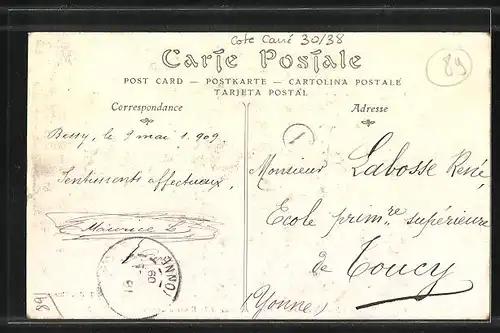 Cote Carré 30/38
89
Carte Postale
POST CARD — POSTKARTE — CARTOLINA POSTALE
TARJETA POSTAL
Correspondance
Adresse
Bessy, le 9 mai 1.909.
Sentiments affectueux,
Maurice L
1
Monsieur Labosse René,
Ecole prim.re supérieure
de Toucy
(Yonne)
YONNE
09
89